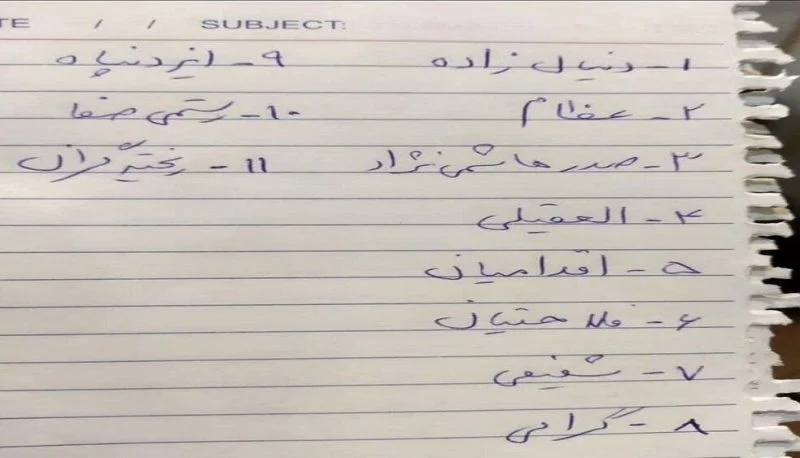 DATE / / SUBJECT:
۱- دنیال زاده
۲- عظام
۳- صدرهاشمی نژاد
۴- العقیلی
۵- اقدامیان
۶- فلاحتیان
۷- شفیعی
۸- گرامی
۹- ایزدپناه
۱۰- رستمی صفا
۱۱- ریخته گران